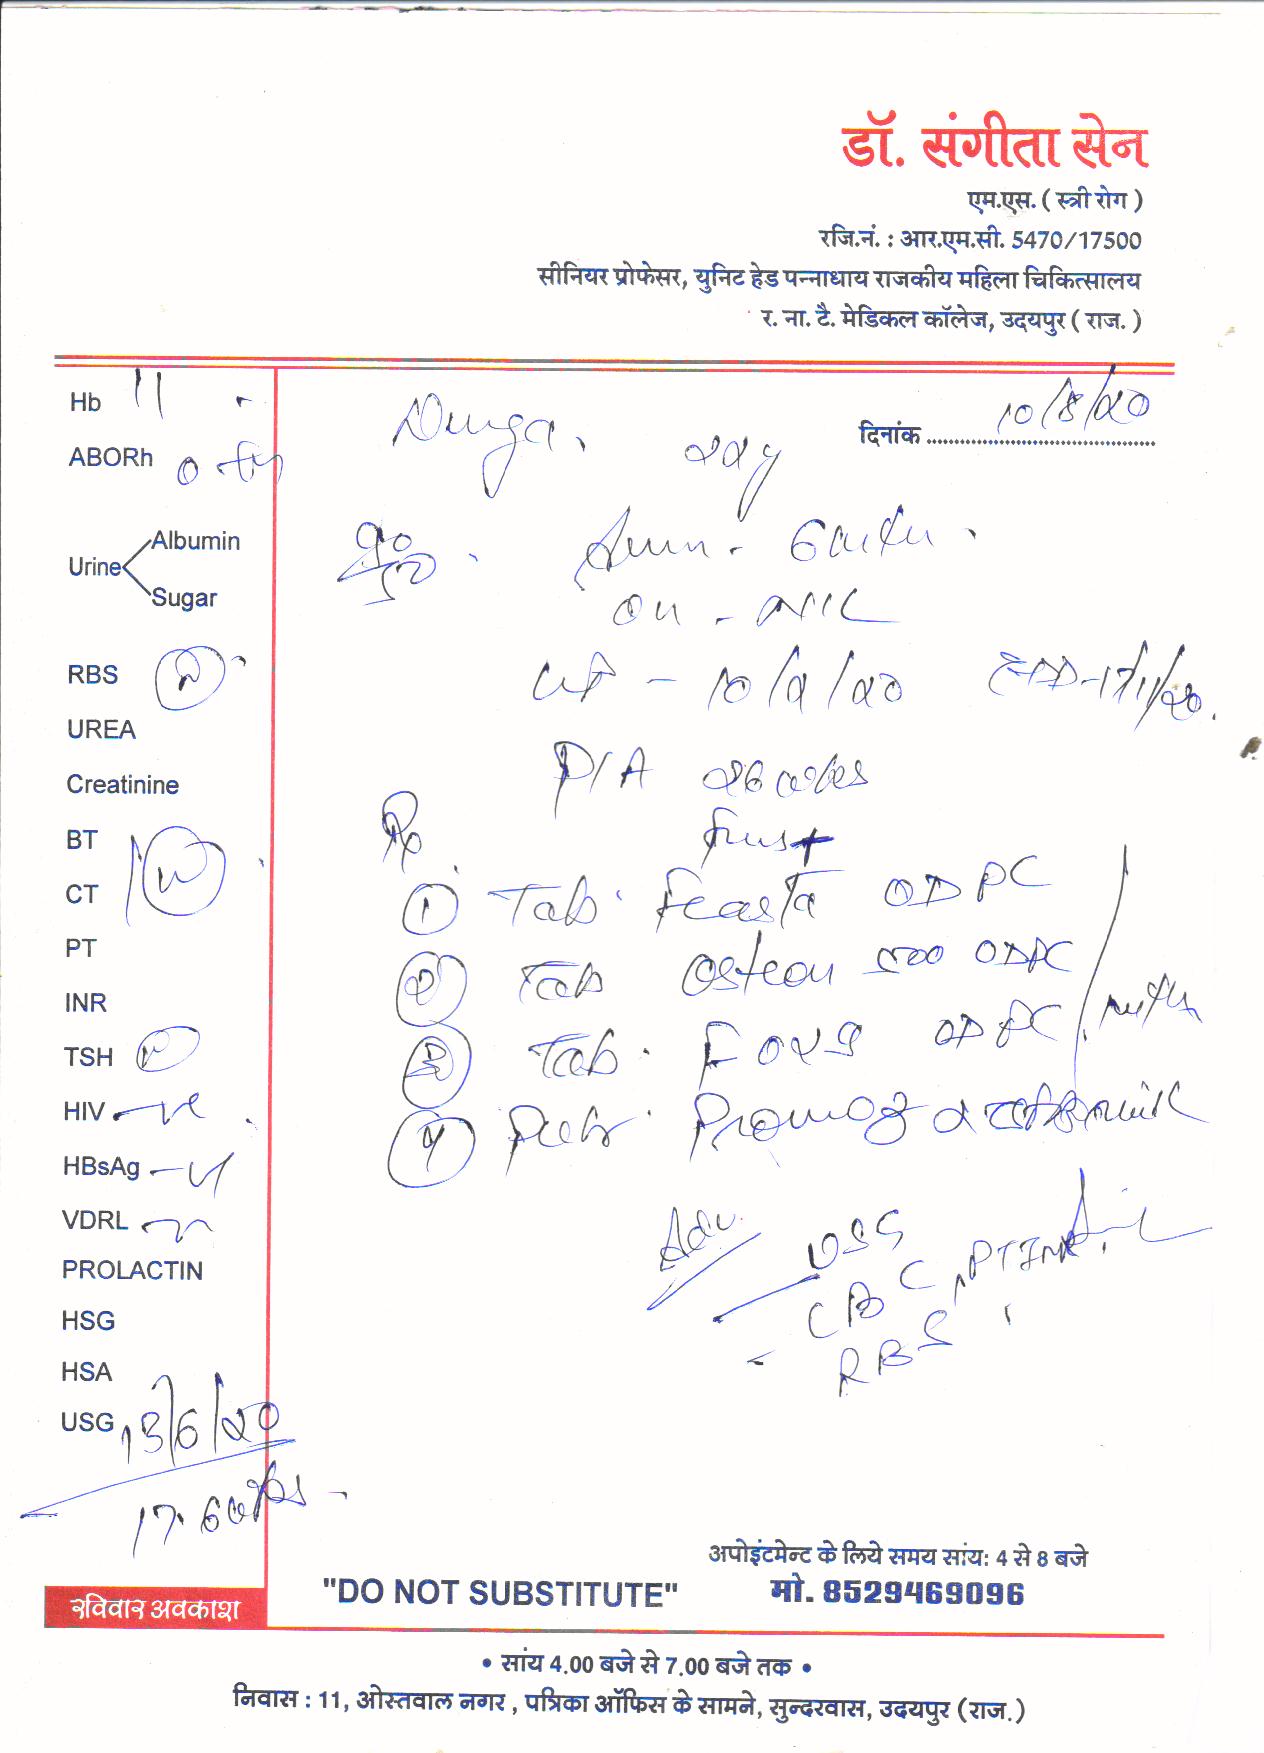 डॉ. संगीता सेन
एम.एस. ( स्त्री रोग )
रजि.नं. : आर.एम.सी. 5470/17500
सीनियर प्रोफेसर, युनिट हेड पन्नाधाय राजकीय महिला चिकित्सालय
र. ना. टै. मेडिकल कॉलेज, उदयपुर ( राज. )
दिनांक 10/8/20
Durga. 22y
Hb 11
ABORh O +
Urine Albumin
Sugar
RBS N
UREA
Creatinine
BT
CT
PT
INR
TSH N
HIV -ve
HBsAg -ve
VDRL
PROLACTIN
HSG
HSA
USG 13/6/20
17.6 wks
10/2/20 EDD-17/11/20
P/A 26 wks
1 Tab. OD PC
2 Tab 500 OD PC
3 Tab. OD PC
4 milk
Adv. USG
CBC, PTINR
RBS
अपोइंटमेन्ट के लिये समय सांय: 4 से 8 बजे
"DO NOT SUBSTITUTE" मो. 8529469096
रविवार अवकाश
• सांय 4.00 बजे से 7.00 बजे तक •
निवास : 11, ओस्तवाल नगर , पत्रिका ऑफिस के सामने, सुन्दरवास, उदयपुर (राज.)